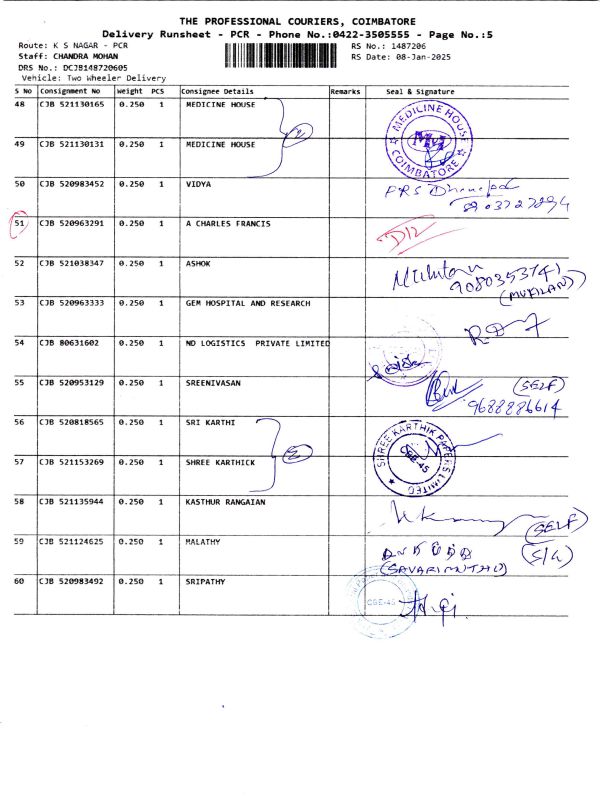 THE PROFESSIONAL COURIERS, COIMBATORE
Delivery Runsheet - PCR - Phone No.:0422-3505555 - Page No.:5
Route: K S NAGAR - PCR
RS No.: 1487206
Staff: CHANDRA MOHAN
RS Date: 08-Jan-2025
DRS No.: DCJB148720605
Vehicle: Two Wheeler Delivery
S No Consignment No Weight PCS Consignee Details Remarks Seal & Signature
48 CJB 521130165 0.250 1 MEDICINE HOUSE
MEDICINE HOUSE
MH
COIMBATORE
49 CJB 521130131 0.250 1 MEDICINE HOUSE
50 CJB 520983452 0.250 1 VIDYA
51 CJB 520963291 0.250 1 A CHARLES FRANCIS
D12
52 CJB 521038347 0.250 1 ASHOK
9080353741
(MUKILAN)
53 CJB 520963333 0.250 1 GEM HOSPITAL AND RESEARCH
54 CJB 80631602 0.250 1 ND LOGISTICS PRIVATE LIMITED
55 CJB 520953129 0.250 1 SREENIVASAN
(SELF)
9688886614
56 CJB 520818565 0.250 1 SRI KARTHI
SHREE KARTHIK PAPERS LIMITED
CBE-45
57 CJB 521153269 0.250 1 SHREE KARTHICK
58 CJB 521135944 0.250 1 KASTHUR RANGAIAN
(SELF)
59 CJB 521124625 0.250 1 MALATHY
(SAVARIMUTHU)
60 CJB 520983492 0.250 1 SRIPATHY
CBE-45